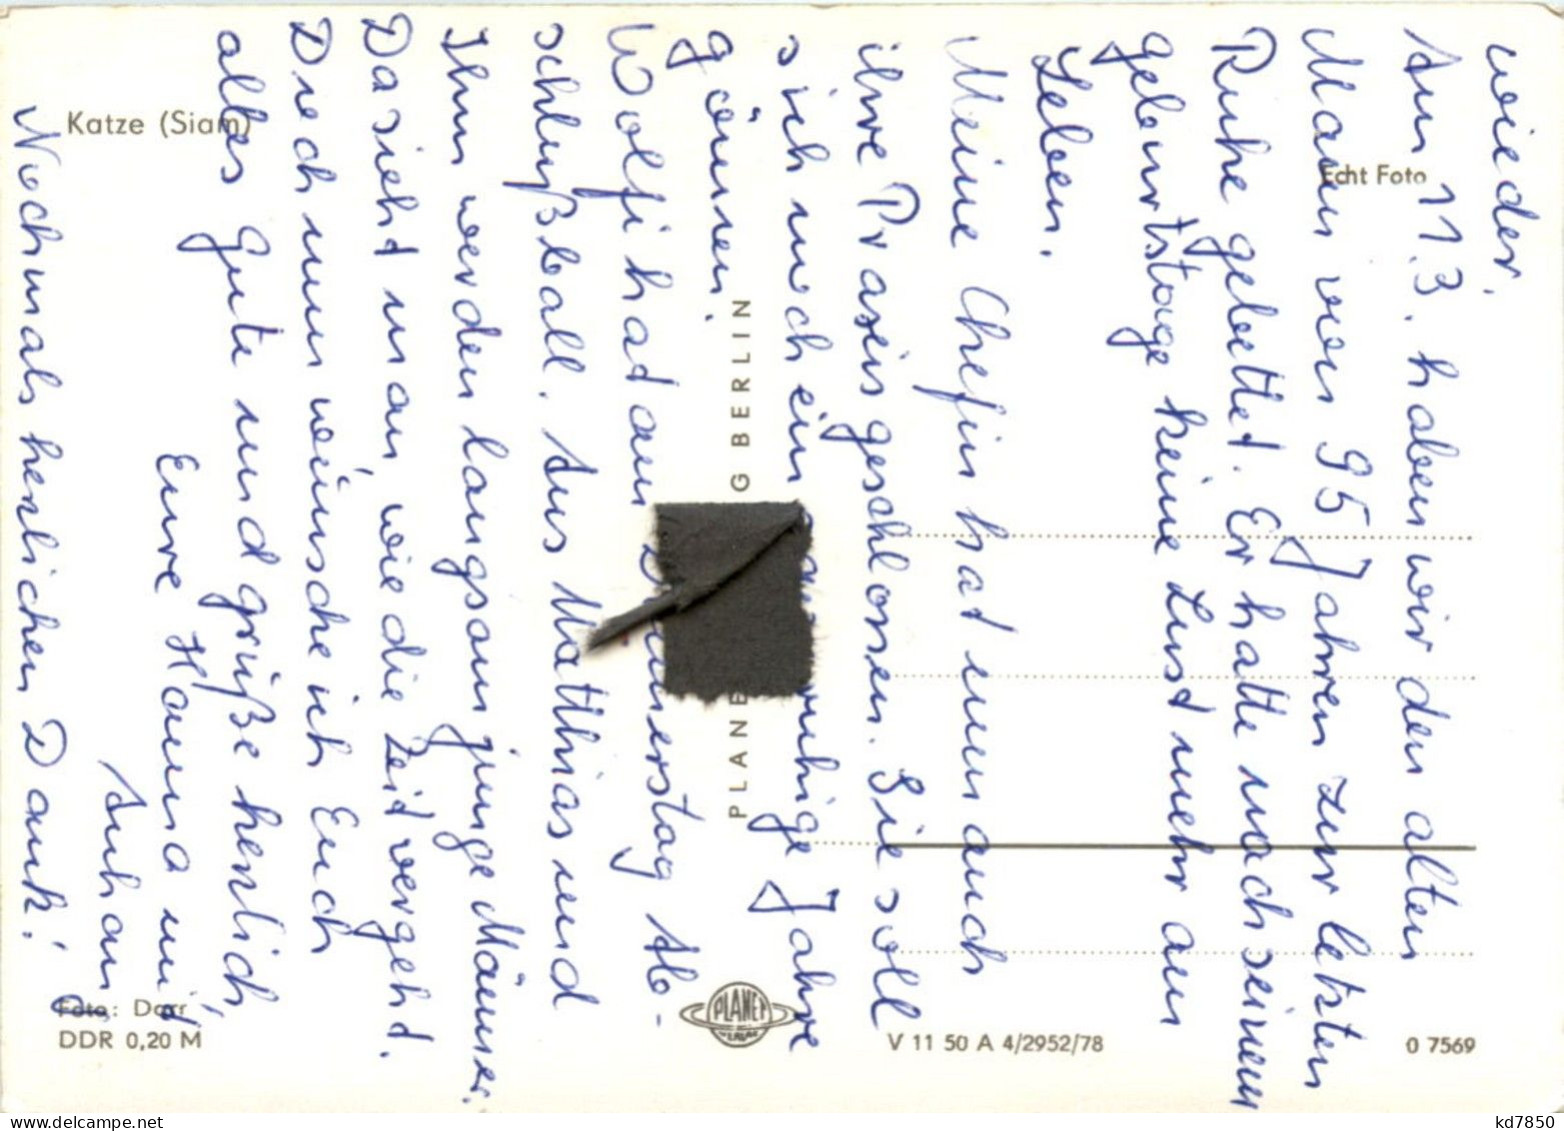 Katze (Siam)
Echt Foto
wieder.
Am 11.3. haben wir den alten
Mann von 95 Jahren zur letzten
Ruhe gebettet. Er hatte nach seinem
geburtstage keine Lust mehr am
Leben.
Meine Chefin hat nun auch
ihre Praxis geschlossen. Sie soll
sich noch ein ruhige Jahre
gönnen.
Wolfi hat am Ab-
schlußball. Aus Matthias und
Ihm werden langsam junge Männer.
Da sieht man, wie die Zeit vergeht.
Doch nun wünsche ich Euch
alles Gute und grüße herzlich,
Eure Hanna mit
Anhang
Nochmals herzlichen Dank!
PLANE G BERLIN
PLANET
VERLAG
Foto: Darr
DDR 0,20 M
V 11 50 A 4/2952/78
0 7569
kd7850